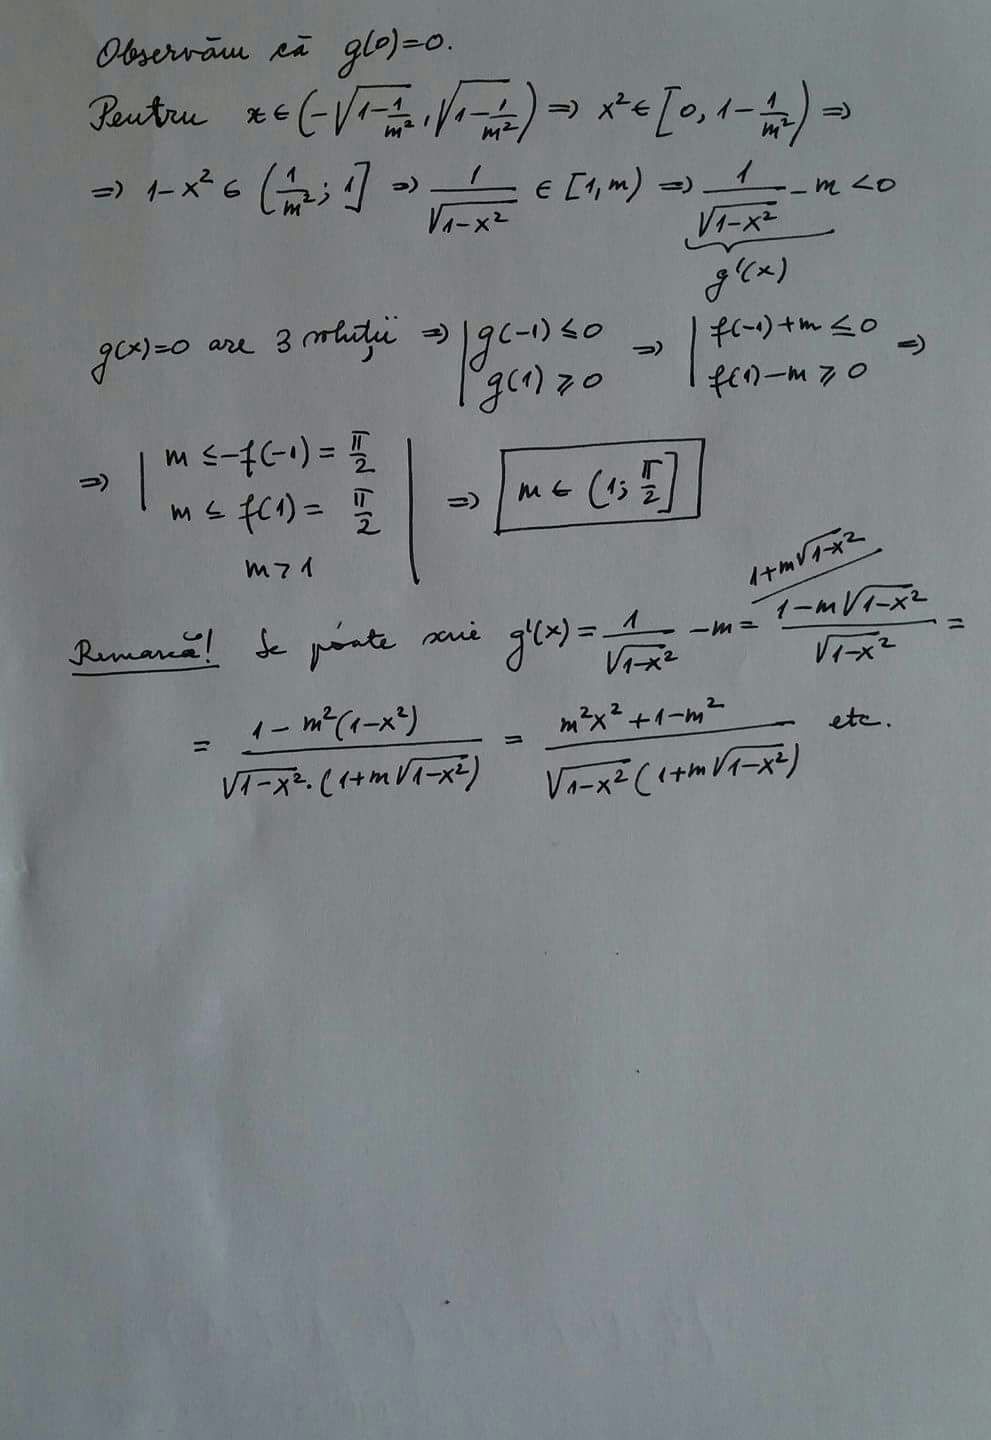 Observăm că g(0)=0.
Pentru x∈(-√(1-1/m²), √(1-1/m²)) ⇒ x²∈[0, 1-1/m²) ⇒
⇒ 1-x² ∈ (1/m²; 1] ⇒ 1/√(1-x²) ∈ [1,m) ⇒ 1/√(1-x²) - m < 0
g'(x)
g(x)=0 are 3 soluții ⇒ | g(-1) ≤ 0 ⇒ | f(-1)+m ≤ 0 ⇒
g(1) ≥ 0 f(1)-m ≥ 0
⇒ | m ≤ -f(-1) = π/2
m ≤ f(1) = π/2 | ⇒ m ∈ (1; π/2]
m > 1
1+m√(1-x²)
Remarcă! Se poate scrie g'(x) = 1/√(1-x²) - m = (1-m√(1-x²))/√(1-x²) =
= (1-m²(1-x²))/(√(1-x²)·(1+m√(1-x²))) = (m²x²+1-m²)/(√(1-x²)(1+m√(1-x²))) etc.